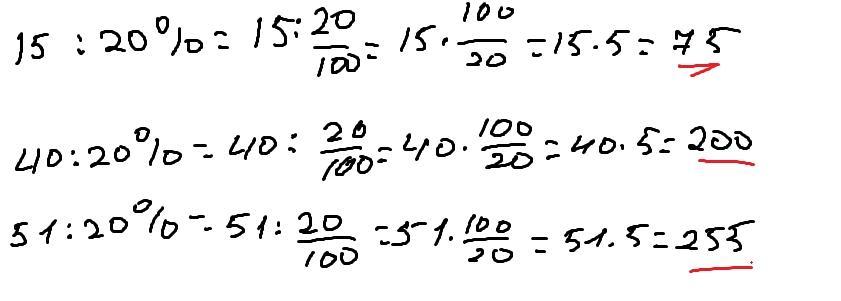 15 : 20% = 15 : 20/100 = 15 · 100/20 = 15 · 5 = 75
40 : 20% = 40 : 20/100 = 40 · 100/20 = 40 · 5 = 200
51 : 20% = 51 : 20/100 = 51 · 100/20 = 51 · 5 = 255